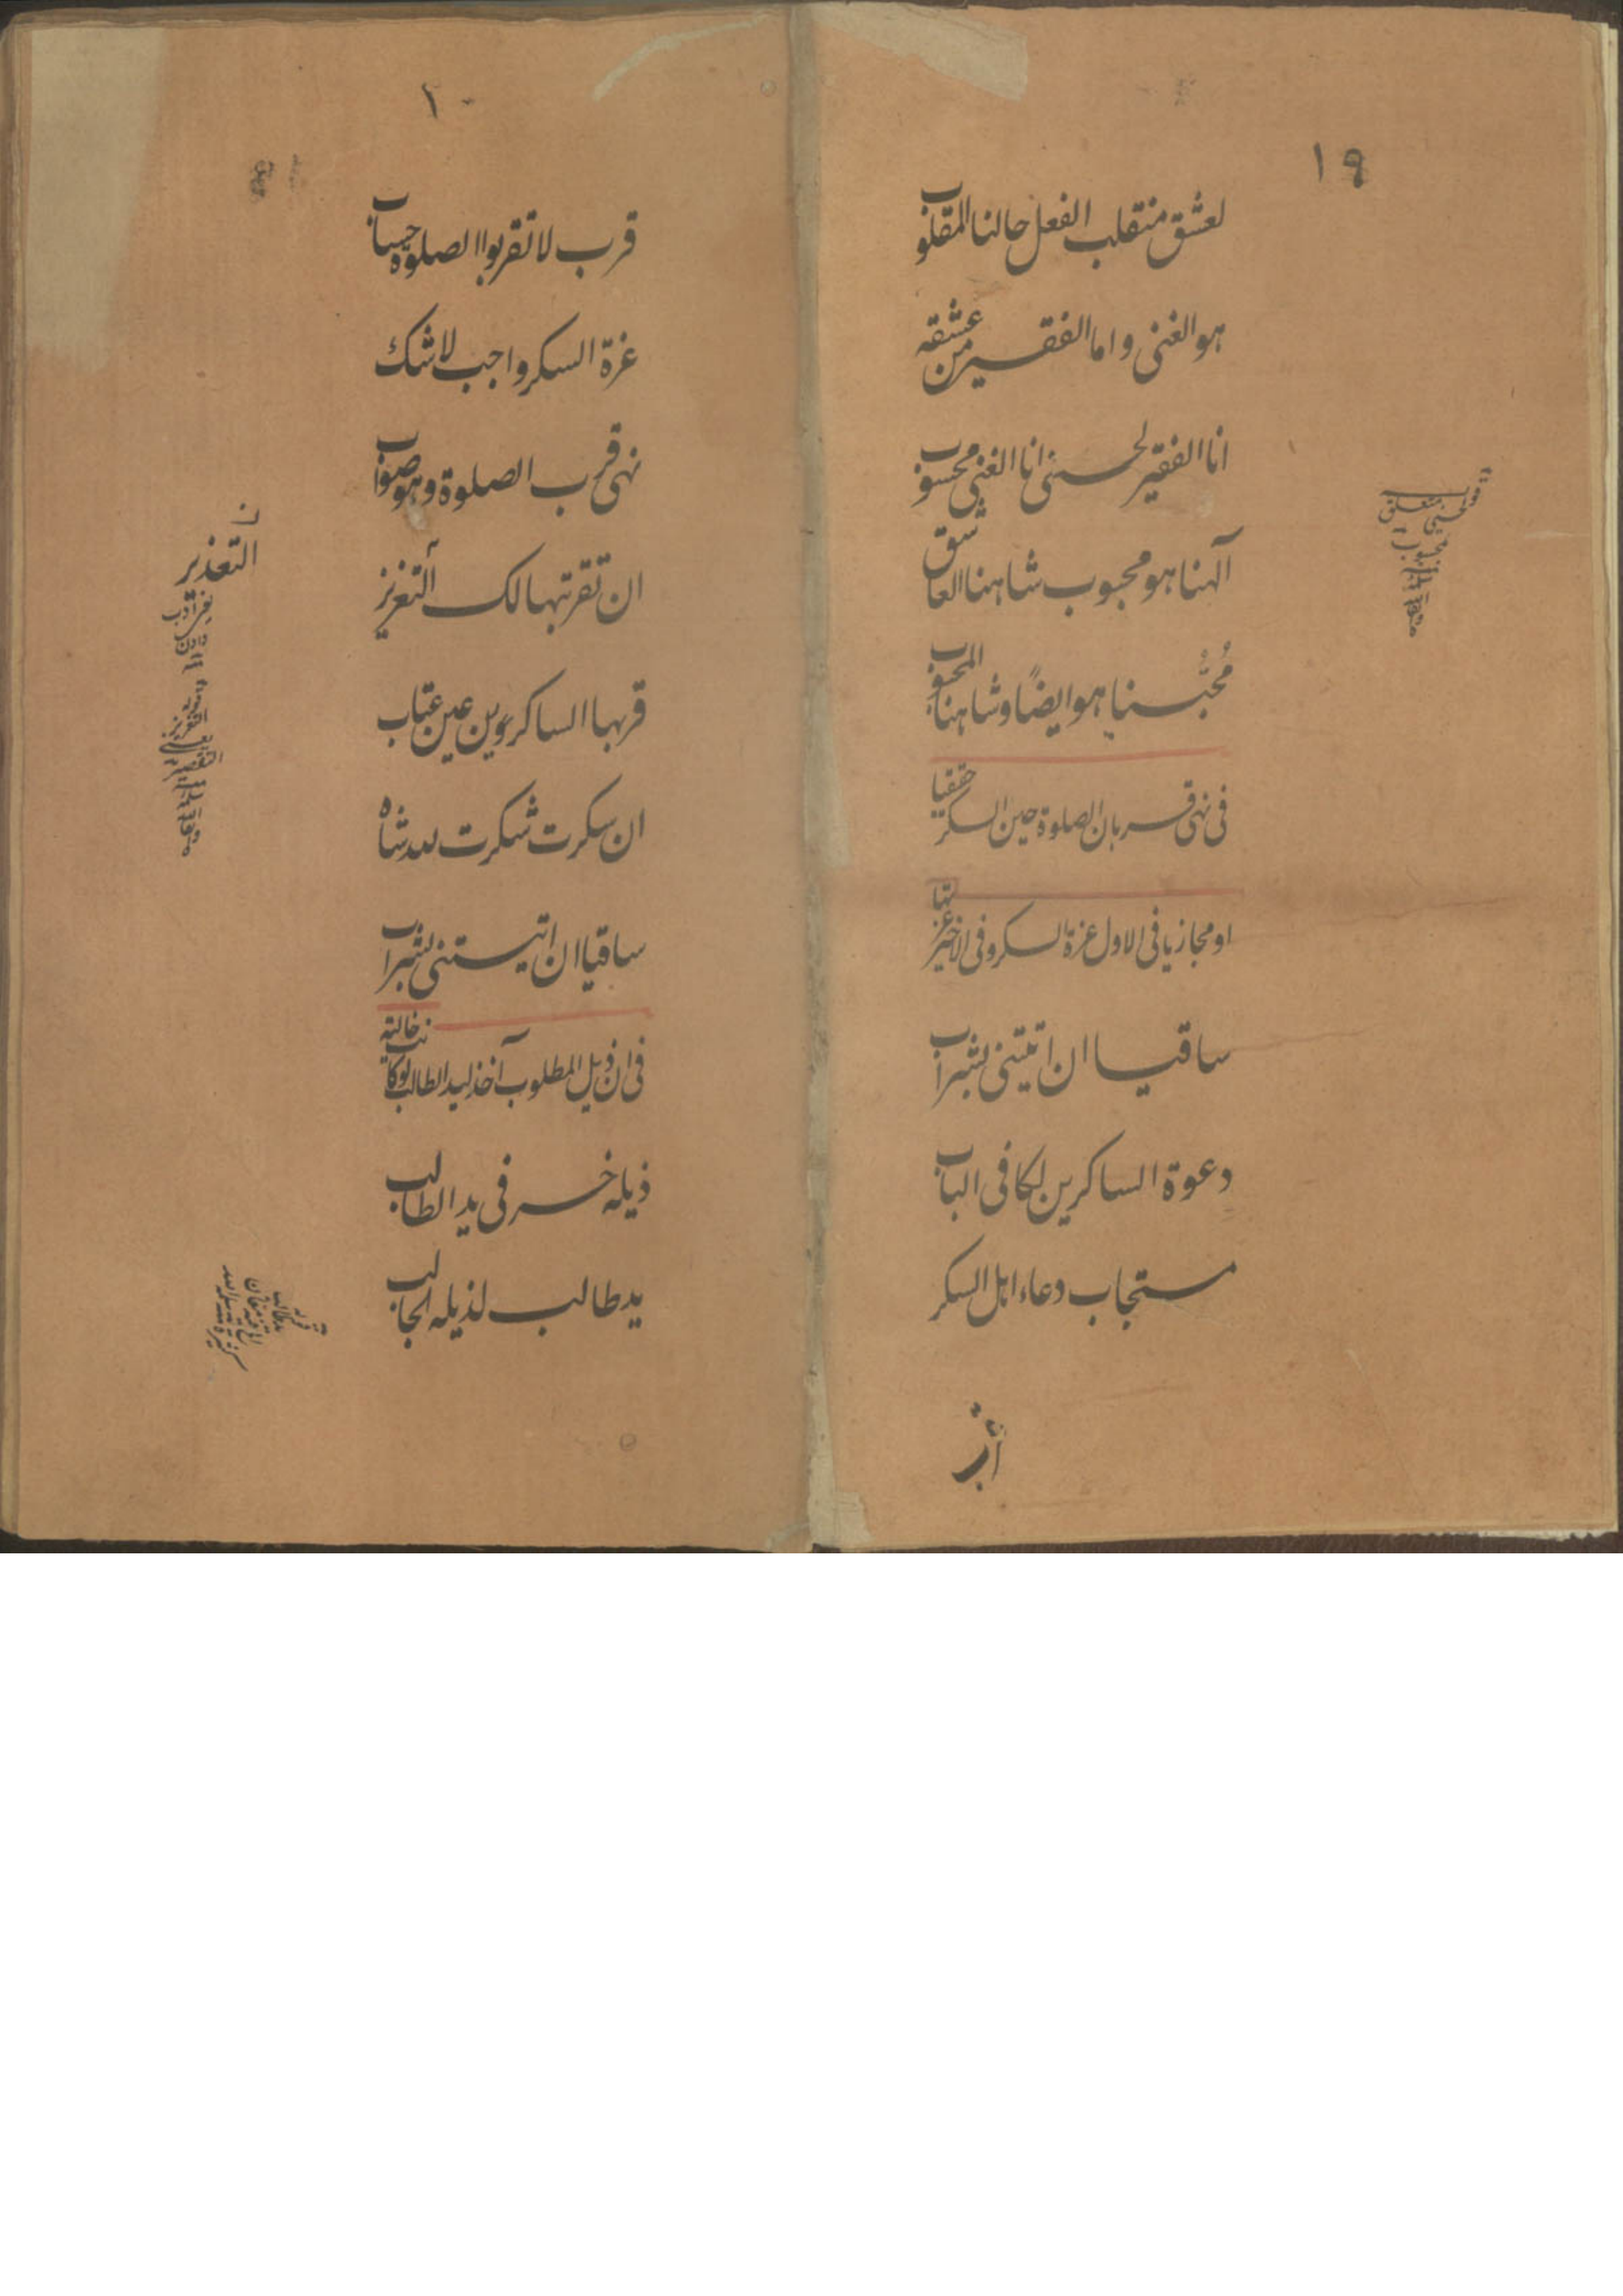 ١٩
لعشق منقلب الفعل حالنا المقلوب
هو الغنی و اما الفقیر من عشقه
انا الفقیر لحسنی انا الغنی محسوب
آلهنا هو محبوب شاهنا العاشق
مُحبُّنا هو ایضًا و شاهنا المحبوب
فی نهی قربان الصلوة حین السکر حقیقیا
او مجازیا فی الاول عزة السکر و فی الاخیر عزتها
ساقیا ان اتیتنی بشراب
دعوة الساکرین لکا فی الباب
مستجاب دعاء اهل السکر
١٠
قرب لا تقربوا الصلوة حساب
عزة السکر واجب لا شک
نهی قرب الصلوة وهو صواب
ان تقربتها لک التعزیز
قربها الساکروین عین عتاب
ان سکرت شکرت لله شاه
ساقیا ان اتیستنی بشراب
فی ان ذیل المطلوب آخذ لید الطالب لو کانت خالیة
ذیله خسر فی ید الطالب
ید طالب لذیله الجالب
ن
التعذیر